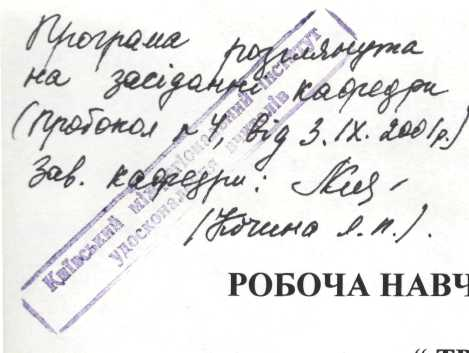 Програма розглянута
на засіданні кафедри
(протокол №7, від 3.IX.2001р.)
Зав. кафедри:
Київський міжрегіональний інститут
удосконалення вчителів
РОБОЧА НАВЧ
“ ТЕ